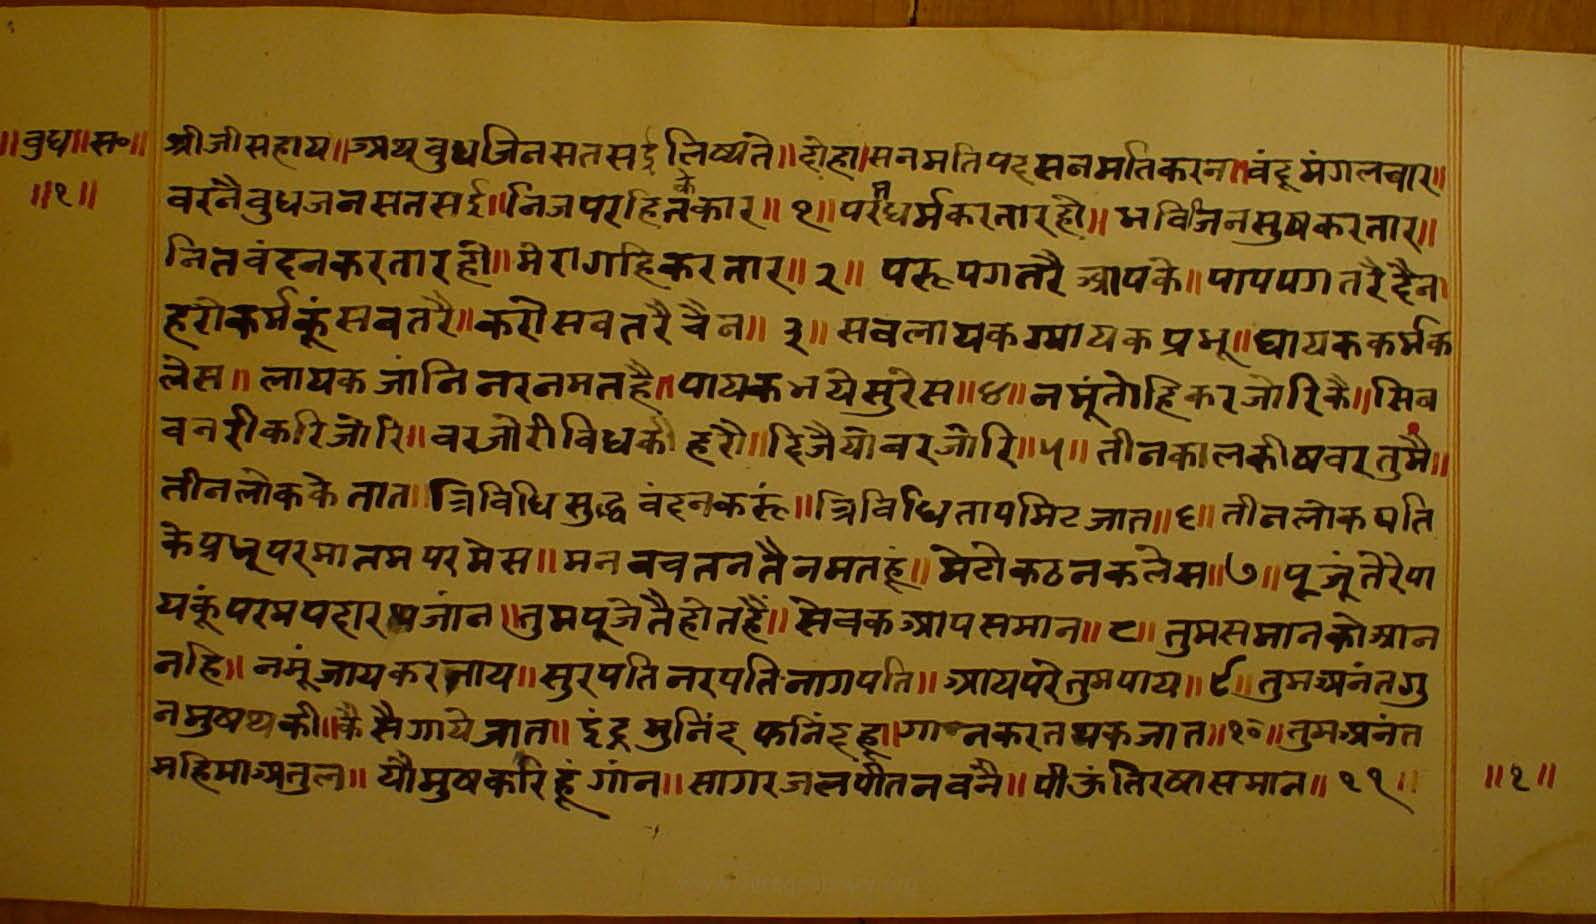 ॥बुध॥स॰॥ श्रीजीसहाय॥अथबुधजिनसतसईलिष्यते॥दोहा॥सनमतिपदसनमतिकरन॥वंदूमंगलचार॥
॥१॥ वरनैबुधजनसतसई॥निजपरहितकेकार॥१॥परमधर्मकरतारहो॥भविजनसुषकरतार॥
नितवंदनकरतारहौ॥मेरागहिकरतार॥२॥परूपगतरैआपके॥पापपगतरैदैन॥
हरोकर्मकूंसबतरै॥करौसबतरैचैन॥३॥सबलायकग्यायकप्रभू॥घायककर्मक
लेस॥लायकजांनिनरनमतहै॥पायकभयेसुरेस॥४॥नमूंतोहिकरजोरिकै॥सिव
वनरीकरिजोरि॥वरजोरीविधकीहरौ॥दिजैयोवरजोरि॥५॥तीनकालकीषवरतुमै॥
तीनलोककेतात॥त्रिविधिसुद्धवंदनकरूं॥त्रिविधितापमिटजात॥६॥तीनलोकपति
केप्रभूपरमातमपरमेस॥मनवचतनतैनमतहूं॥मेटोकठनकलेस॥७॥पूजूंतेरेपा
यकूंपरमपदारथजांन॥तुमपूजेतैहोतहै॥सेवकआपसमान॥८॥तुमसमानकोआन
नहि॥नमूंजायकरनाय॥सुरपतिनरपतिनागपति॥आयपरेतुमपाय॥९॥तुमअनंतगु
नमुषथकी॥कैसैगायेजात॥इंद्रमुनिंदफनिंदहू॥गानकरतथकजात॥१०॥तुमअनंत
महिमाअतुल॥यौमुषकरिहूंगांन॥सागरजलपीतनवनै॥पीऊंतिरषासमान॥११॥ ॥१॥